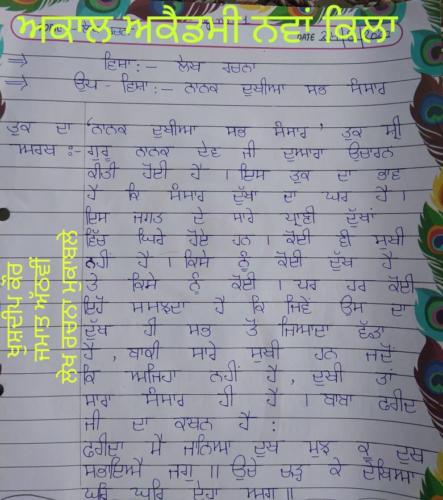 ਅਕਾਲ ਅਕੈਡਮੀ ਨਵਾਂ ਕਿਲਾ
DATE
⇒ ਵਿਸ਼ਾ:- ਲੇਖ ਰਚਨਾ
⇒ ਉਪ-ਵਿਸ਼ਾ:- ਨਾਨਕ ਦੁਖੀਆ ਸਭ ਸੰਸਾਰ
ਤੁਕ ਦਾ 'ਨਾਨਕ ਦੁਖੀਆ ਸਭ ਸੰਸਾਰ' ਤੁਕ ਸ੍ਰੀ
ਅਰਥ:- ਗੁਰੂ ਨਾਨਕ ਦੇਵ ਜੀ ਦੁਆਰਾ ਉਚਾਰਨ
ਕੀਤੀ ਹੋਈ ਹੈ । ਇਸ ਤੁਕ ਦਾ ਭਾਵ
ਹੈ ਕਿ ਸੰਸਾਰ ਦੁੱਖਾਂ ਦਾ ਘਰ ਹੈ ।
ਇਸ ਜਗਤ ਦੇ ਸਾਰੇ ਪ੍ਰਾਣੀ ਦੁੱਖਾਂ
ਵਿੱਚ ਘਿਰੇ ਹੋਏ ਹਨ । ਕੋਈ ਵੀ ਸੁਖੀ
ਨਹੀਂ ਹੈ । ਕਿਸੇ ਨੂੰ ਕੋਈ ਦੁੱਖ ਹੈ
ਤੇ ਕਿਸੇ ਨੂੰ ਕੋਈ । ਪਰ ਹਰ ਕੋਈ
ਇਹੋ ਸਮਝਦਾ ਹੈ ਕਿ ਜਿਵੇਂ ਉਸ ਦਾ
ਦੁੱਖ ਹੀ ਸਭ ਤੋਂ ਜਿਆਦਾ ਵੱਡਾ
ਹੈ, ਬਾਕੀ ਸਾਰੇ ਸੁਖੀ ਹਨ ਜਦੋਂ
ਕਿ ਅਜਿਹਾ ਨਹੀਂ ਹੈ, ਦੁਖੀ ਤਾਂ
ਸਾਰਾ ਸੰਸਾਰ ਹੀ ਹੈ । ਬਾਬਾ ਫਰੀਦ
ਜੀ ਦਾ ਕਥਨ ਹੈ :
ਫਰੀਦਾ ਮੈ ਜਾਨਿਆ ਦੁਖ ਮੁਝ ਕੂ ਦੁਖ
ਸਭਾਇਐ ਜਗੁ ।। ਊਚੇ ਚੜ੍ਹ ਕੇ ਦੇਖਿਆ
ਘਰਿ ਘਰਿ ਏਹਾ ਅਗ ।
ਖੁਸ਼ਦੀਪ ਕੌਰ
ਜਮਾਤ ਅੱਠਵੀਂ
ਲੇਖ ਰਚਨਾ ਮੁਕਾਬਲੇ